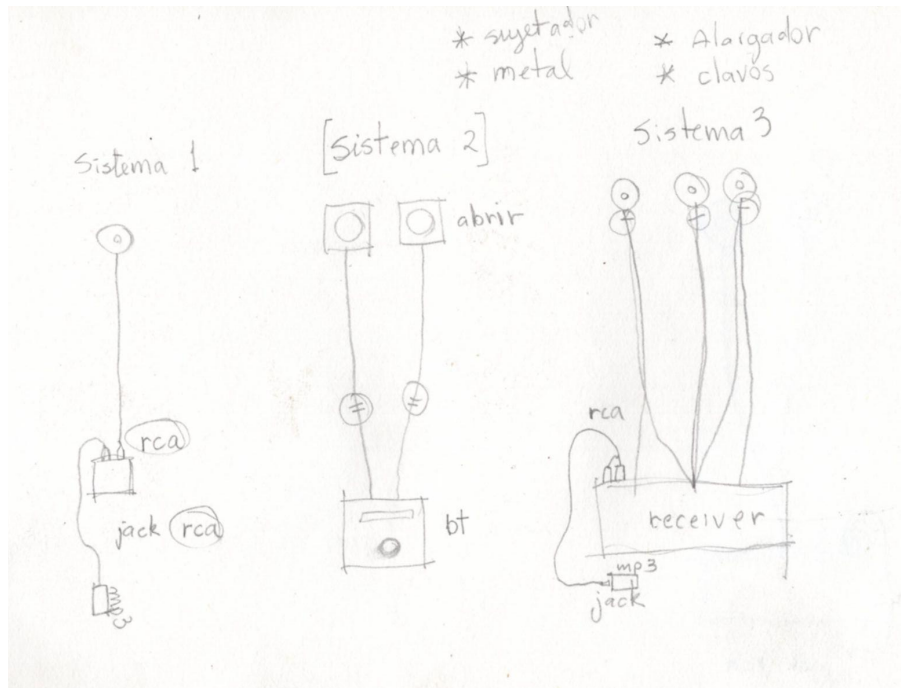 * sujetador
* metal
* Alargador
* clavos
Sistema 1
[Sistema 2]
Sistema 3
abrir
rca
jack rca
mp3
bt
rca
receiver
mp3
jack